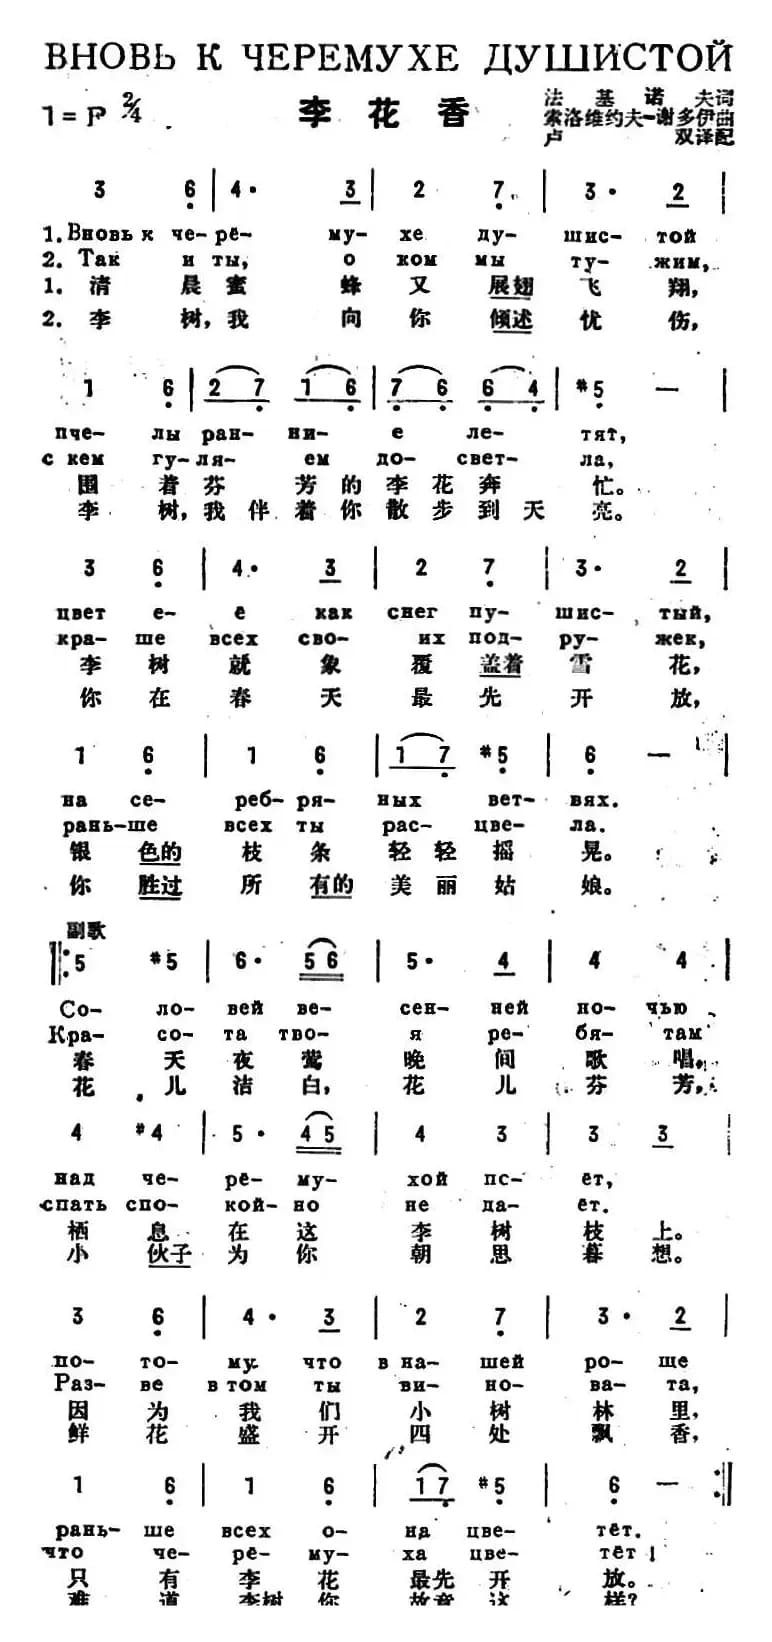 ВНОВЬ К ЧЕРЕМУХЕ ДУШИСТОЙ
1=F 2/4
李花香
法基诺夫词
索洛维约夫-谢多伊曲
卢双译配
3 6 | 4· 3 | 2 7 | 3· 2 |
1. Вновь к че-рё- му- хе ду- шис- той
2. Так и ты, о ком мы ту- жим,
1. 清晨蜜蜂又展翅飞翔,
2. 李树,我向你倾述忧伤,
1 6 | 2 7 1 6 | 7 6 6 4 | #5 — |
пче- лы ран- ни- е ле- тят,
с кем гу-ля- ем до-свет- ла,
围着芬芳的李花奔忙。
李树,我伴着你散步到天亮。
3 6 | 4· 3 | 2 7 | 3· 2 |
цвет е- ё как снег пу- шис- тый,
кра- ше всех сво- их под- ру- жек,
李树就象覆盖着雪花,
你在春天最先开放,
1 6 | 1 6 | 1 7 #5 | 6 — |
на се- реб-ря- ных вет- вях.
рань-ше всех ты рас- цве- ла.
银色的枝条轻轻摇晃。
你胜过所有的美丽姑娘。
副歌
5 #5 | 6· 5 6 | 5· 4 | 4 4 |
Со- ло- вей ве- сен- ней но- чью
Кра- со- та тво- я ре- бя- там
春天夜莺晚间歌唱,
花儿洁白,花儿芬芳,
4 #4 | 5· 4 5 | 4 3 | 3 3 |
над че- рё- му- хой пс- ёт,
спать спо- кой-но не да- ёт.
栖息在这李树枝上。
小伙子为你朝思暮想。
3 6 | 4· 3 | 2 7 | 3· 2 |
по- то- му что в на- шей ро- ще
Раз- ве в том ты ви- но- ва- та,
因为我们小树林里,
鲜花盛开四处飘香,
1 6 | 1 6 | 1 7 #5 | 6 — :|
рань- ше всех о- на цве- тёт.
что че- рё- му- ха цве- тёт!
只有李花最先开放。
难道李树你故意这样?